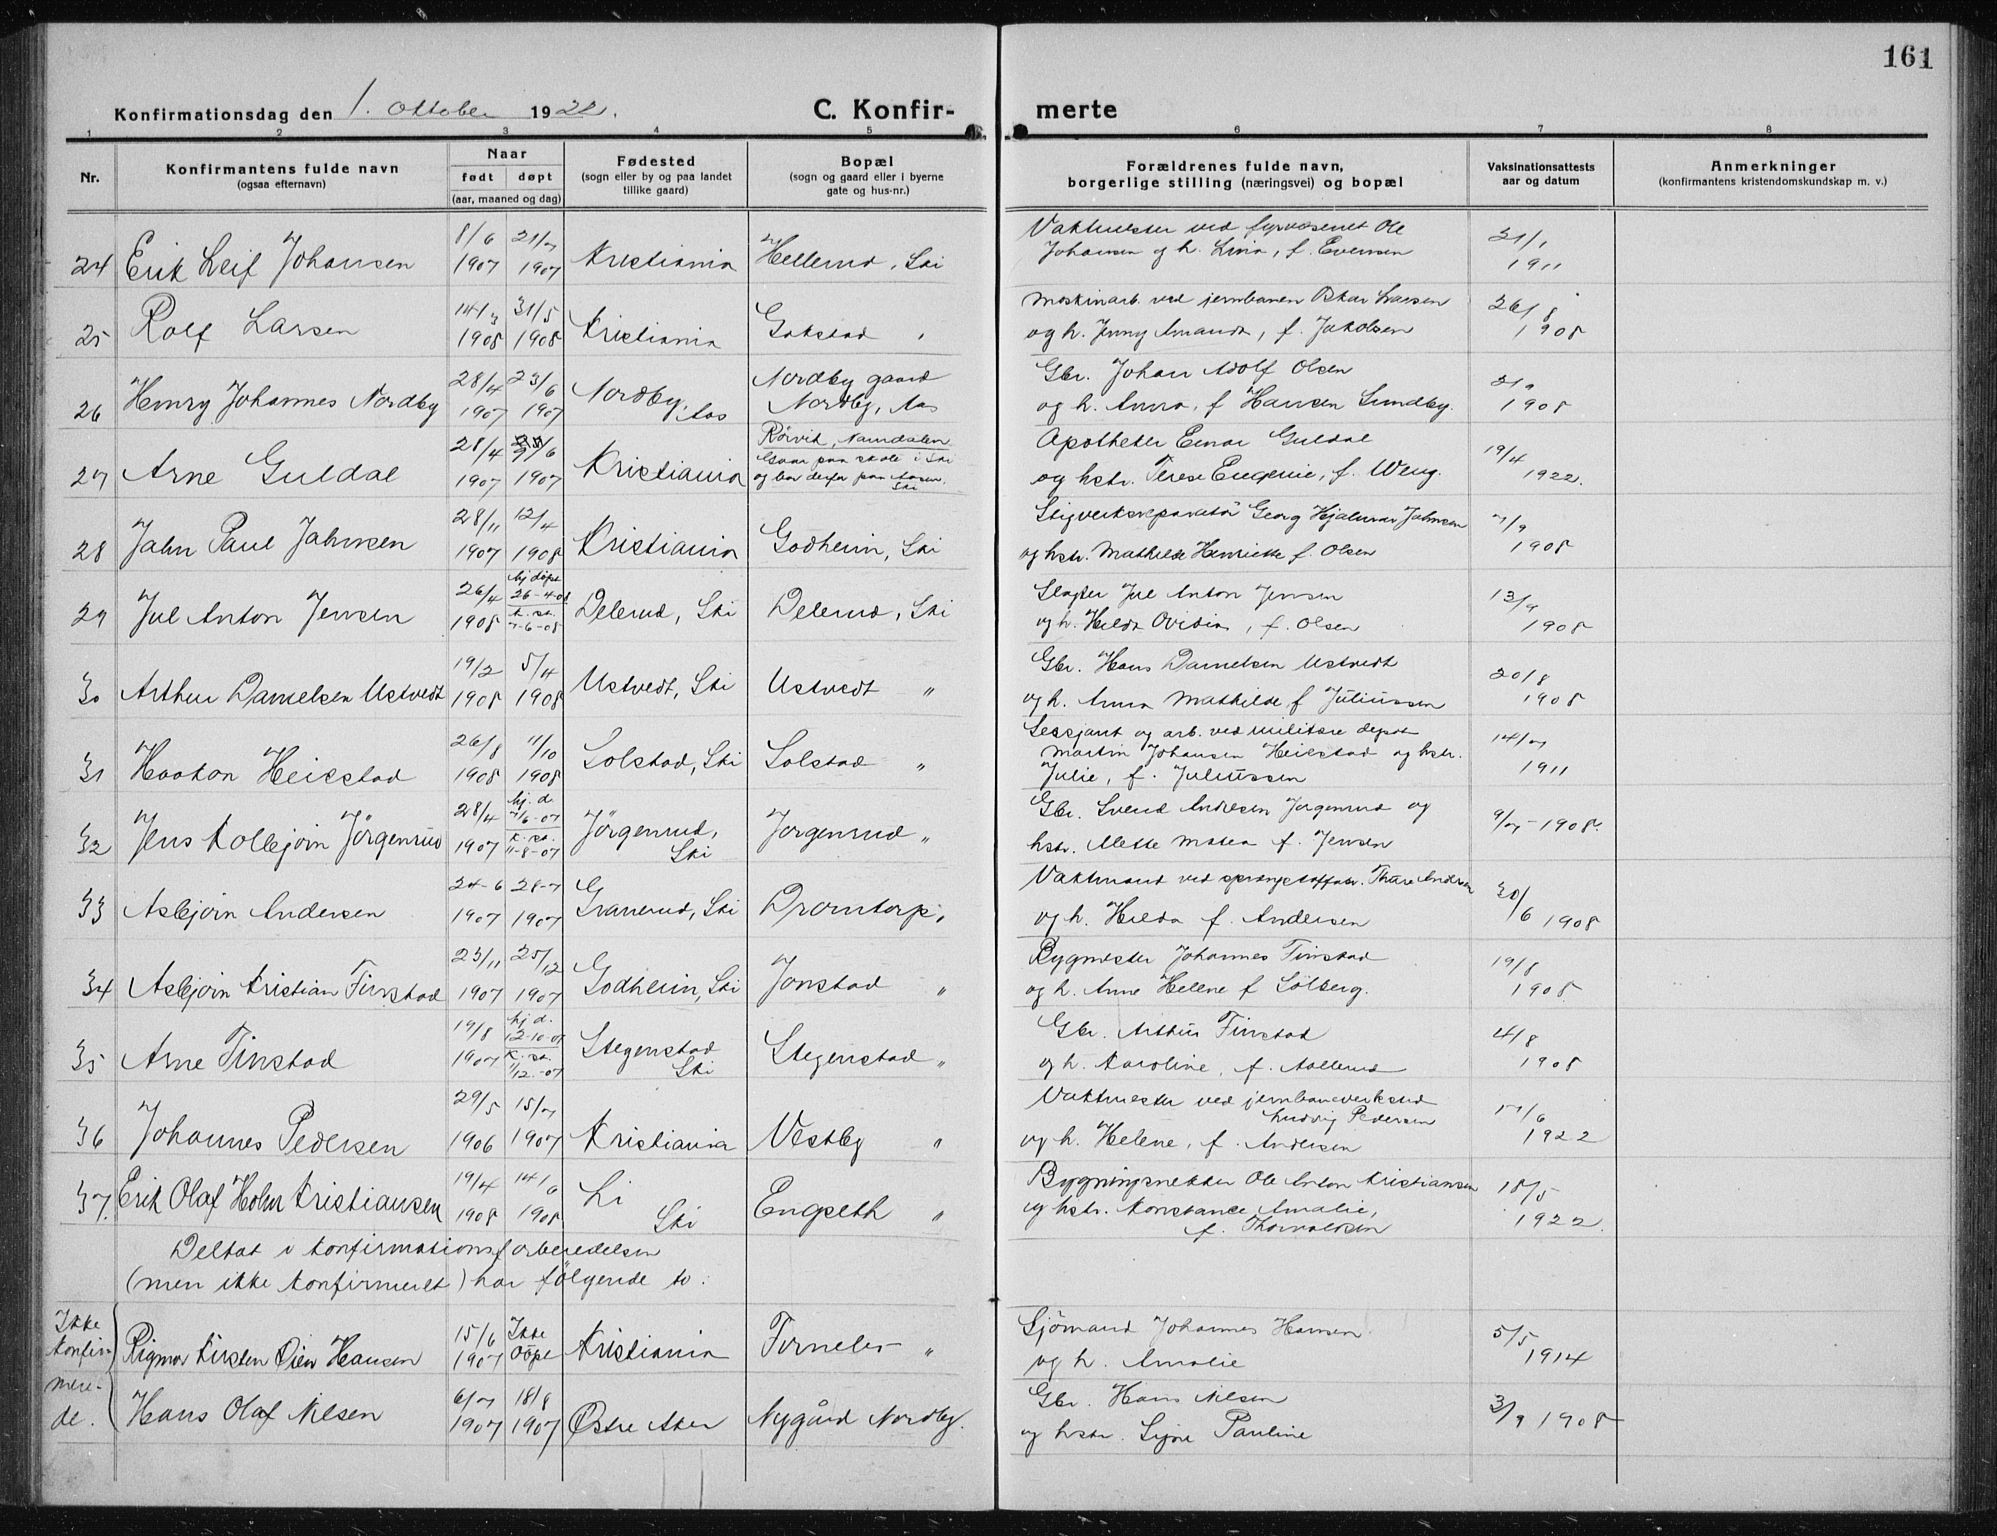 161
Konfirmationsdag den 1. Oktober 1922.
C. Konfir-merte
1 2 3 4 5 6 7 8
Nr.
Konfirmantens fulde navn
(ogsaa efternavn)
Naar
født døpt
(aar, maaned og dag)
Fødested
(sogn eller by og paa landet
tillike gaard)
Bopæl
(sogn og gaard eller i byerne
gate og hus-nr.)
Forældrenes fulde navn,
borgerlige stilling (næringsvei) og bopæl
Vaksinationsattests
aar og datum
Anmerkninger
(konfirmantens kristendomskundskap m. v.)
8/6 21/7 Vaktmester ved fyrvæsenet Ole
24 Erik Leif Johansen 1907 1907 Kristiania Hellerud, Ski Johansen og h. Lina, f. Evensen 31/1 1911
14/3 31/5 Maskinarb. ved jernbanen Oskar Larsen
25 Rolf Larsen 1908 1908 Kristiania Gakstad " og h. Jenny Amanda, f. Jakobsen 26/8 1908
28/4 23/6 Nordby gaard Gbr. Johan Adolf Olsen
26 Henry Johannes Nordby 1907 1907 Nordby, Aas Nordby, Aas og h. Anna, f. Hansen Sundby. 1908
28/4 /6 Rørvik, Namdalen Apotheker Einar Guldal
27 Arne Guldal 1907 1907 Kristiania Gaar paa skole i Ski og bor derfor paa Aasen Ski og hstr. Terese Eugenie, f. Weng. 19/4 1922.
28/11 12/4 Georg Hjalmar Jahnsen
28 Jahn Paul Jahnsen 1907 1908 Kristiania Godheim, Ski og hstr. Mathilde Henriette f. Olsen 7/9 1908
26/4 hj døpt 26-4-08 Slagter Jul Anton Jensen
29 Jul Anton Jensen 1908 k. st. 7-6-08 Delerud, Ski Delerud, Ski og h. Hilda Ovidia, f. Olsen 13/9 1908
19/2 5/4 Gbr. Hans Danielsen Ustvedt
30 Arthur Danielsen Ustvedt 1908 1908 Ustvedt, Ski Ustvedt " og h. Anna Mathilde f Juliussen 20/8 1908
26/8 11/10 Sersjant og arb. ved militære depot
31 Haakon Heiestad 1908 1908 Solstad, Ski Solstad " Martin Johansen Heiestad og hstr. 14/7 1911
Julie, f. Juliussen
28/4 hj. d. 7/6-07 Gbr. Svend Andresen Jørgenrud og
32 Jens Kolbjørn Jørgenrud 1907 k. st. 11-8-07 Jørgenrud, Ski Jørgenrud " hstr. Mette Matea f. Jensen 9/7-1908.
24-6 28-7 Vaktmand ved sprængstoffabr. Thure Andersen
33 Asbjørn Andersen 1907 1907 Granerud, Ski Drømtorp, og h. Hilda f. Andersen 30/6 1908
23/11 25/12 Bygmester Johannes Finstad
34 Asbjørn Kristian Finstad 1907 1907 Godheim, Ski Jonstad " og h. Anne Helene f Solberg. 19/8 1908
19/8 hj d. 12-10-07 Gbr. Arthur Finstad
35 Arne Finstad 1907 k. st. 1/12.-07 Stegenstad Ski Stegenstad " og h. Karoline, f. Aallerud 4/8 1908
29/5 15/7 Vaktmester ved jernbaneverksted
Ludvig Pedersen
36 Johannes Pedersen 1906 1907 Kristiania Vestby " og h. Helene, f. Andersen 17/6 1922
19/4 14/6 Bygningsnekker Ole Anton Kristiansen
37. Erik Olaf Holm Kristiansen 1908 1908 Li Ski Engseth " og hstr. Konstance Amalie, 18/5 1922.
f. Thorvaldsen
Deltat i Konfirmationsforberedelsen
(men ikke Konfirmert) har følgende to:
Ikke Konfirmerede.
15/6 Ikke Sjömand Johannes Hansen
Rigmor Kirsten Øien Hansen 1907 døpt Kristiania Torneler " og h. Amalie 5/5 1914
6/7 18/8 Gbr. Hans Nilsen
Hans Olaf Nilsen 1907 1907 Østre Aker Nygård Nordby. og hstr. Signe Pauline 3/9 1908